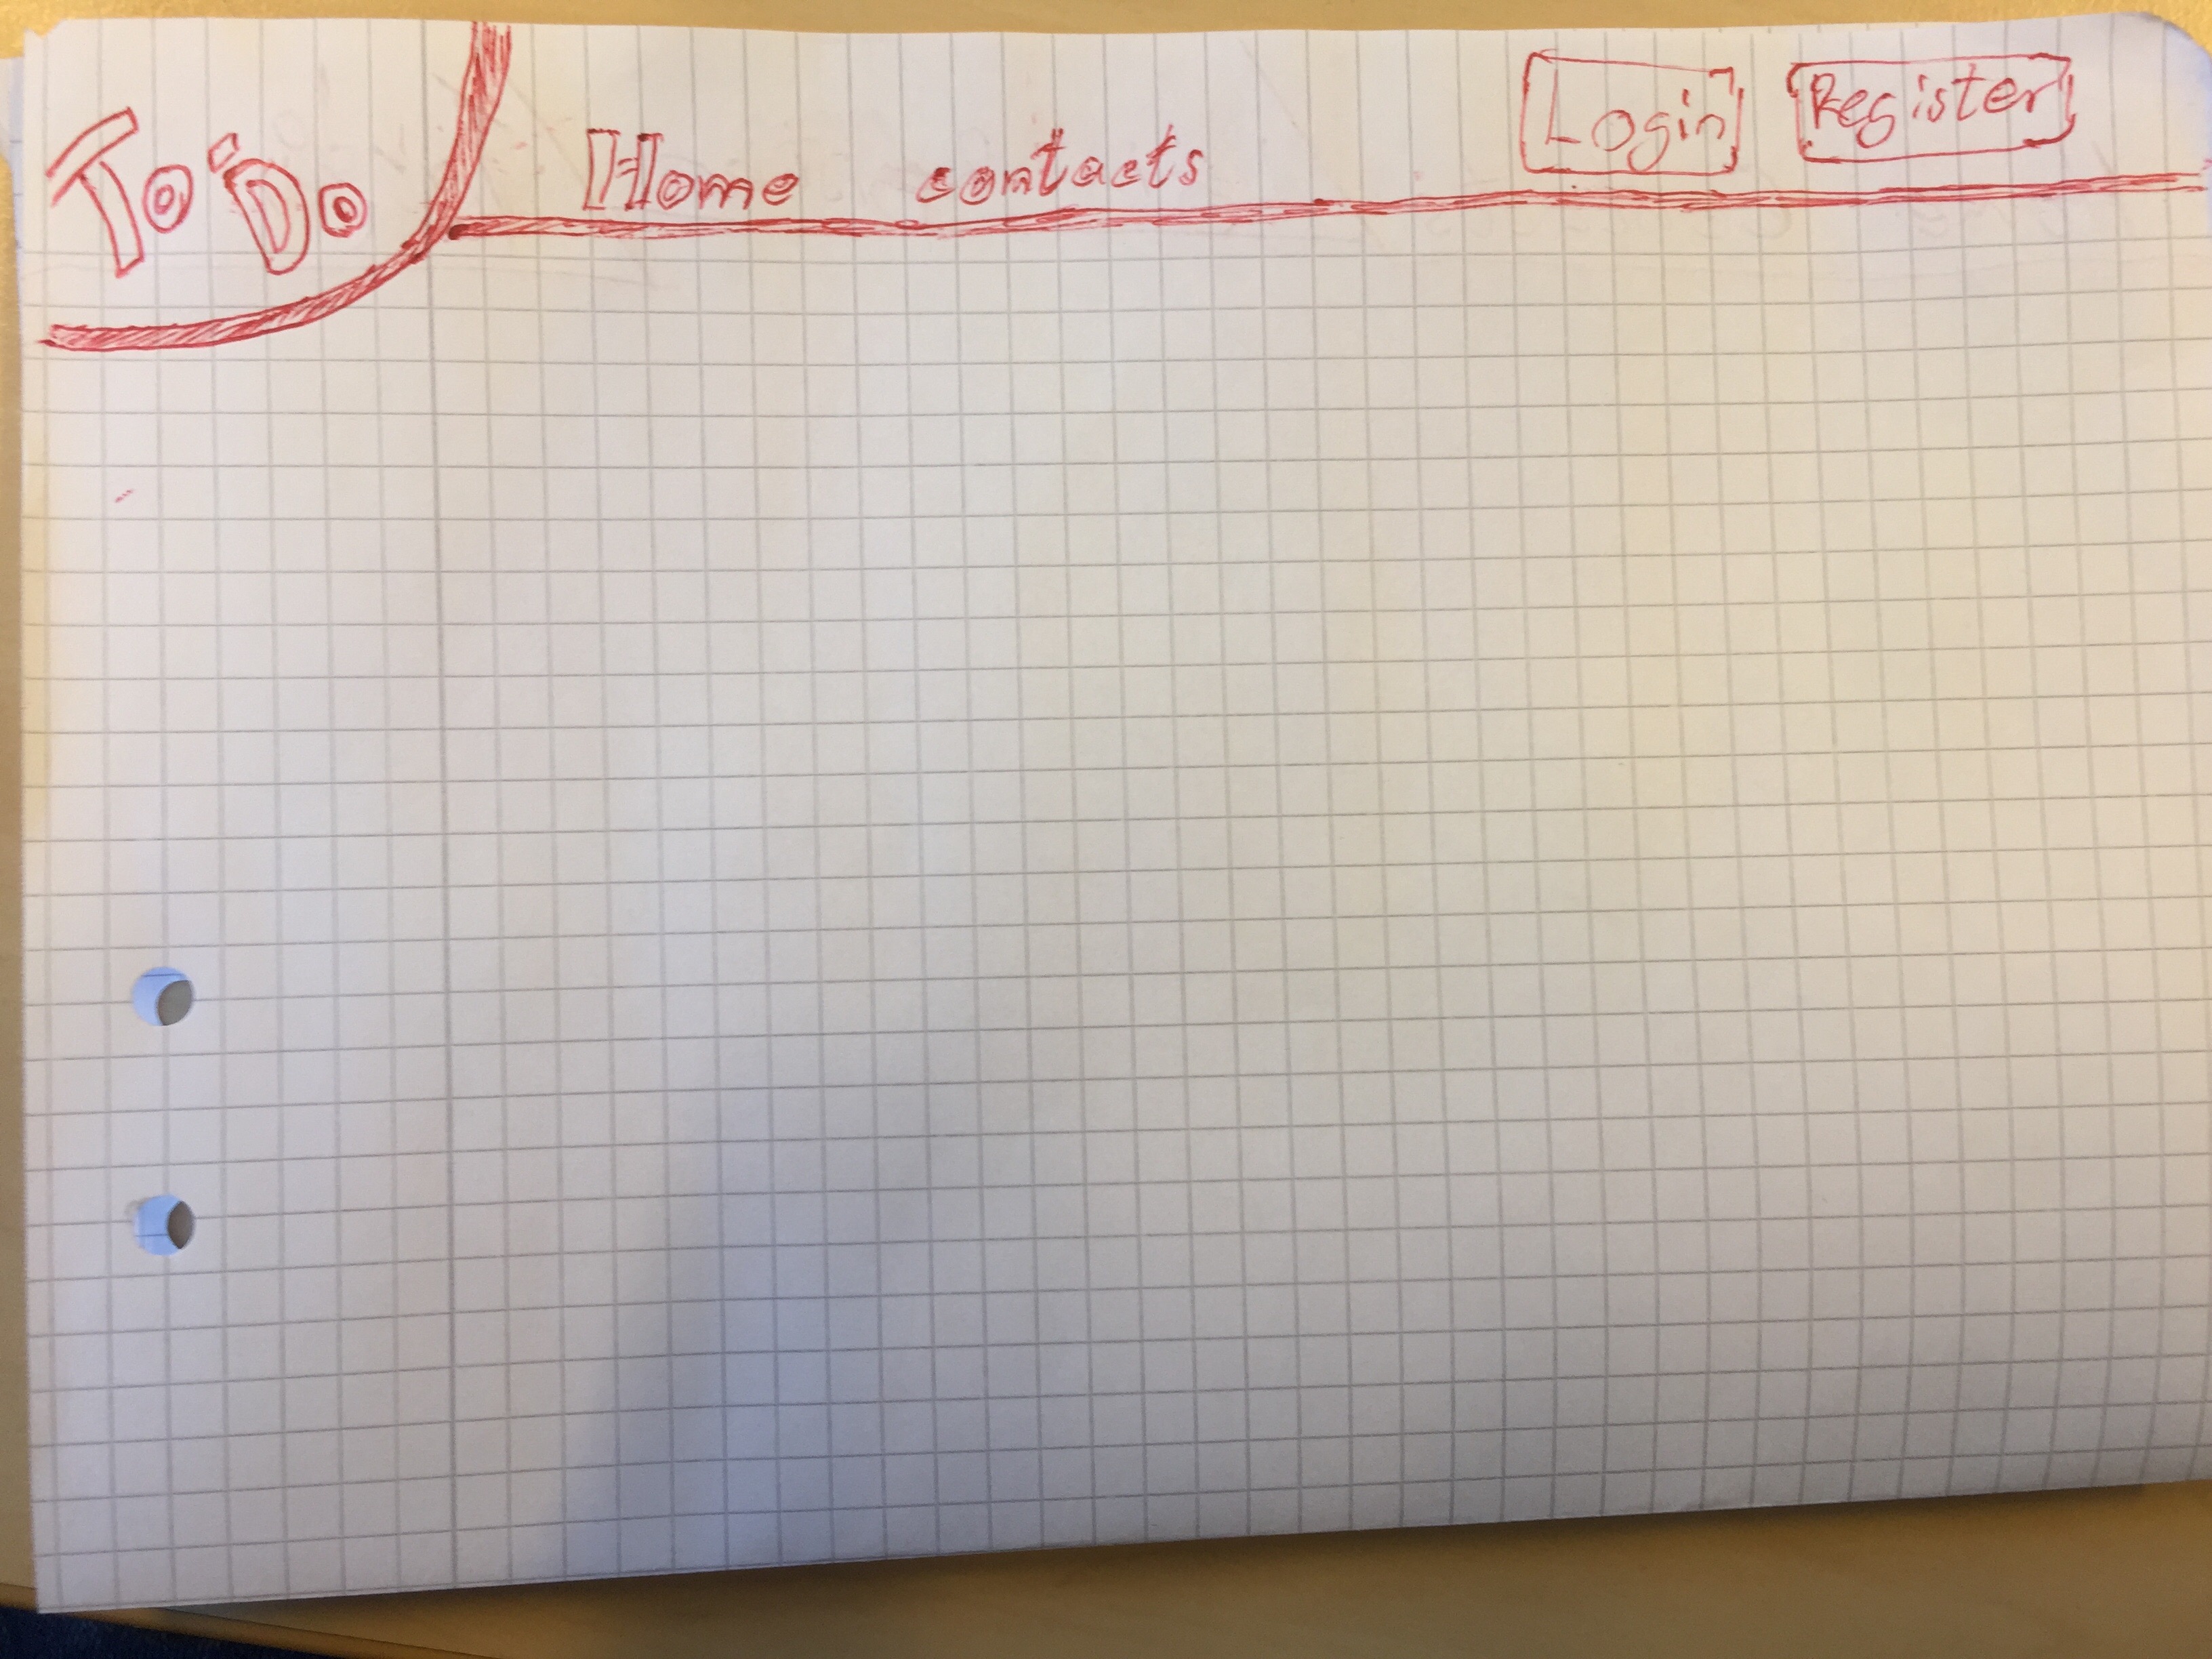 To Do
Home contacts
Login Register